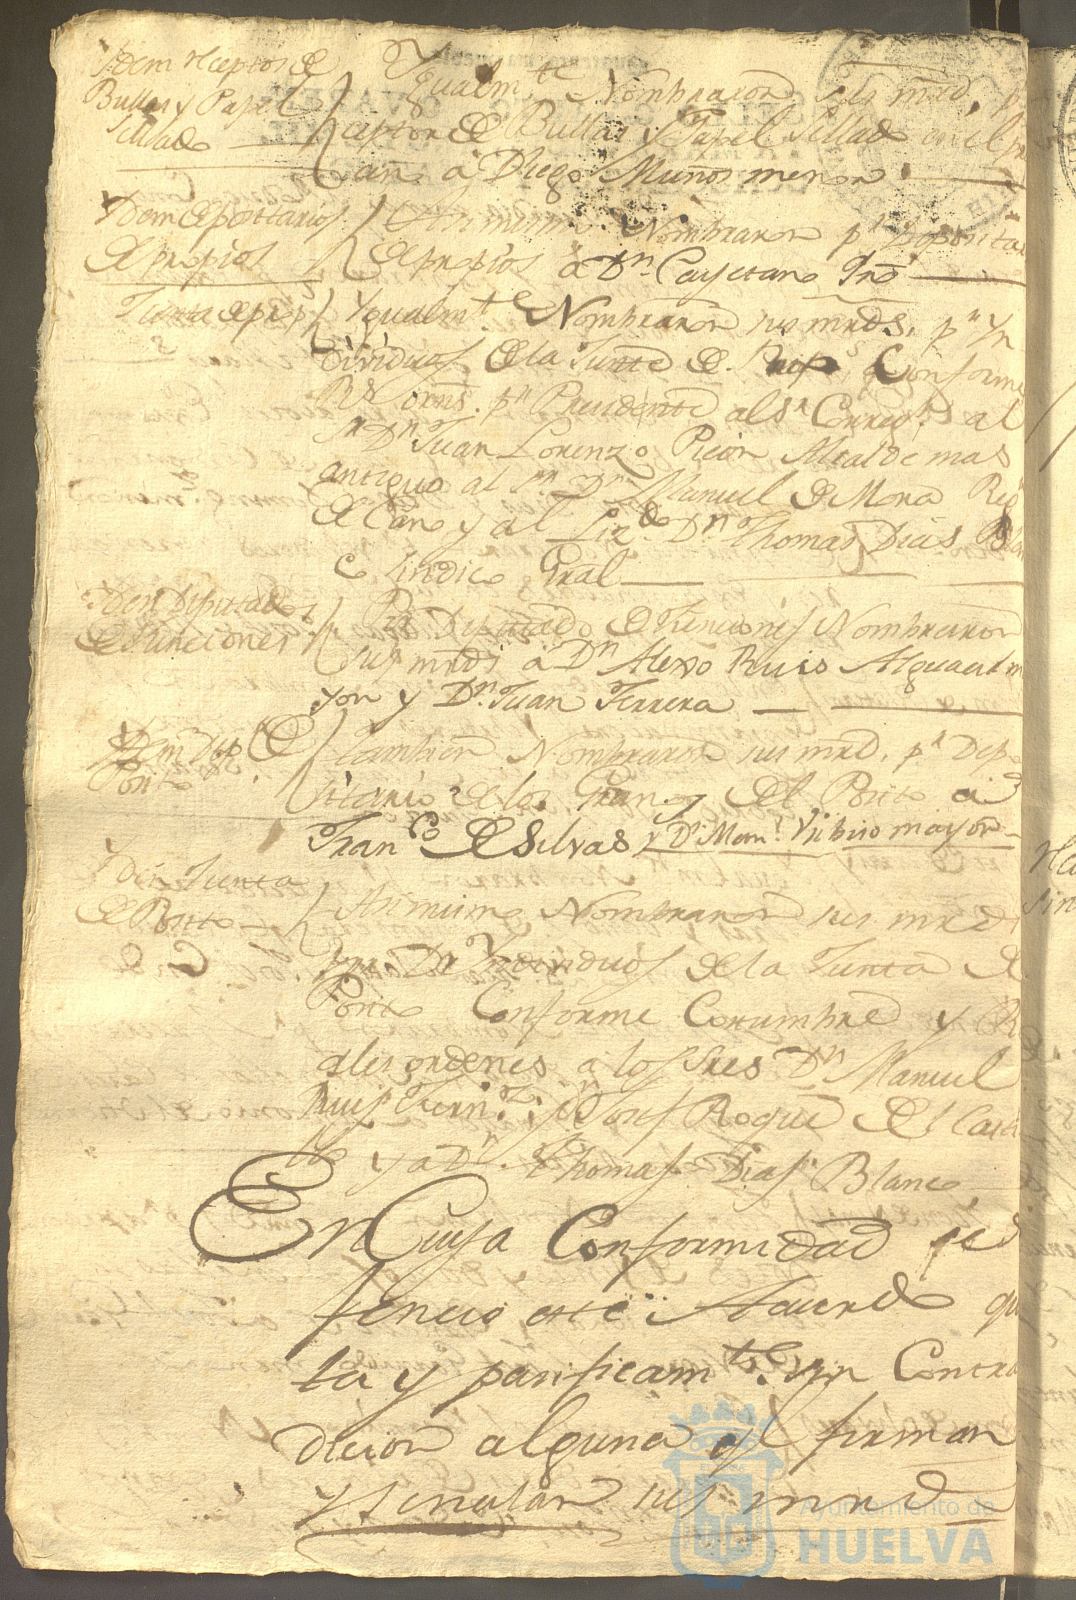 Idem receptor de
Bullas y Papel
Sellado
Ygualmte. Nombraron sus mrds. pr
ceptor de Bullas y Papel Sellado en el pu
Cano á Diego Muños menor
Idem depositario
de propios
Asimismo Nombraron pa. Deposita
de propios á Dn. Cayetano
Junta de prop
Ygualmte. Nombraron sus mrds. pa. Yn
dividuos de la Junta de Conforme
Rs. ornes. pa. Presidente al Sr. Corregr. al
Sr. Dn. Juan Lorenzo Picon Alcalde mas
antiguo al Sr. Dn. Manuel de Mora Regr
y al Lizdo. Dn. Thomas Dias Blan
co Sindico Gral
Idem Diputados
de Funciones
Pr. Diputado de Funciones Nombraron
sus mrds á Dn. Alexo Ruis Alguacil m
yor y Dn. Juan Ferrera
Idem Dep. de
Posito
Tambien Nombraron sus mrd. pa. Depo
sitario de los Granos del Posito a
Franco. de Silvas y Dn. Manl. mayor
Idem Junta
de Posito
Asimismo Nombraron sus mrds
por Yndividuos de la Junta de
Posito Conforme Costumbre y R
ales ordenes a los Sres Dn. Manuel
Ruis Fernz. Josef Roque de el Cast
llo y a Dn. Thomas Dias Blanco
En Cuya Conformidad se
fenecio este Acuerdo qu
ta y pasificamte. sin Contra
dicion alguna y lo firman
y señalan sus mrd
Ayuntamiento de
HUELVA